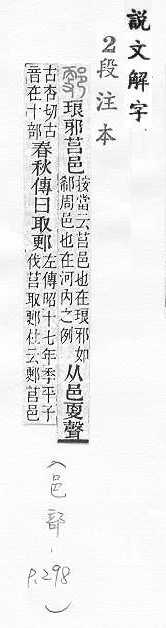 說文解字
2段注本
郠 琅邪莒邑 按當云莒邑也在琅邪如
郗周邑也在河內之例 从邑㪅聲
古杏切古
音在十部 春秋傳曰取郠 左傳昭十七年季平子
伐莒取郠杜云郠莒邑
（邑部，P.298）